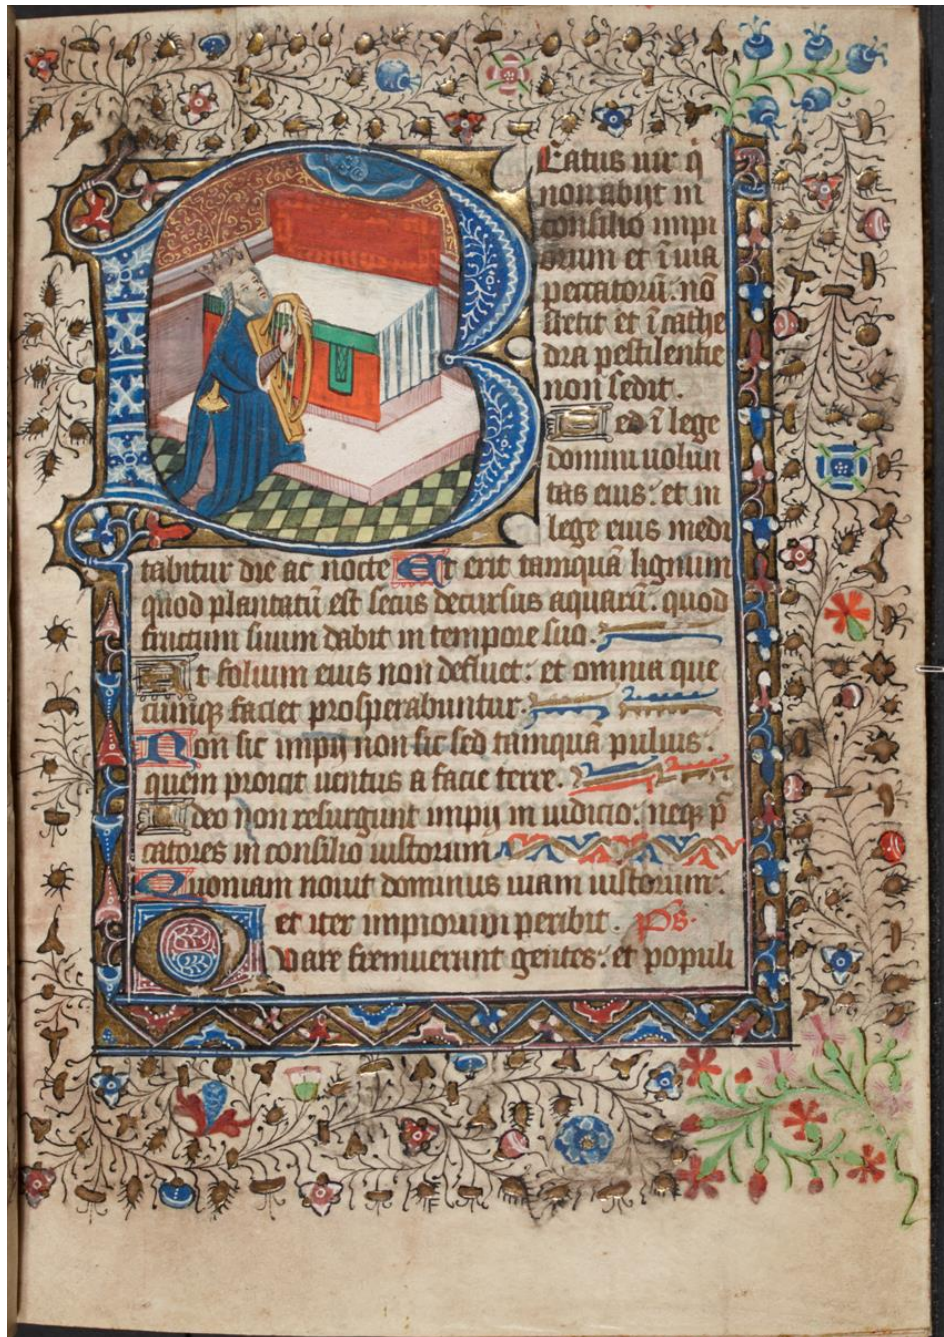 Beatus uir q̄
non abijt in
consilio impi
orum et ī uia
peccatorū: nō
stetit et ī cathe
dra pestilentie
non sedit.
Sed ī lege
domini uolun
tas eius: et in
lege eius medi
tabitur die ac nocte Et erit tamquā lignum
quod plantatū est secus decursus aquarū: quod
fructum suum dabit in tempore suo.
Et folium eius non defluet: et omnia que
cunqꝫ faciet prosperabuntur.
Non sic impij non sic sed tamquā puluis:
quem proicit uentus a facie terre.
Ideo non resurgunt impij in iudicio: neqꝫ p̄
catores in consilio iustorum
Quoniam nouit dominus uiam iustorum:
et iter impiorum peribit. Ps.
Quare fremuerunt gentes: et populi